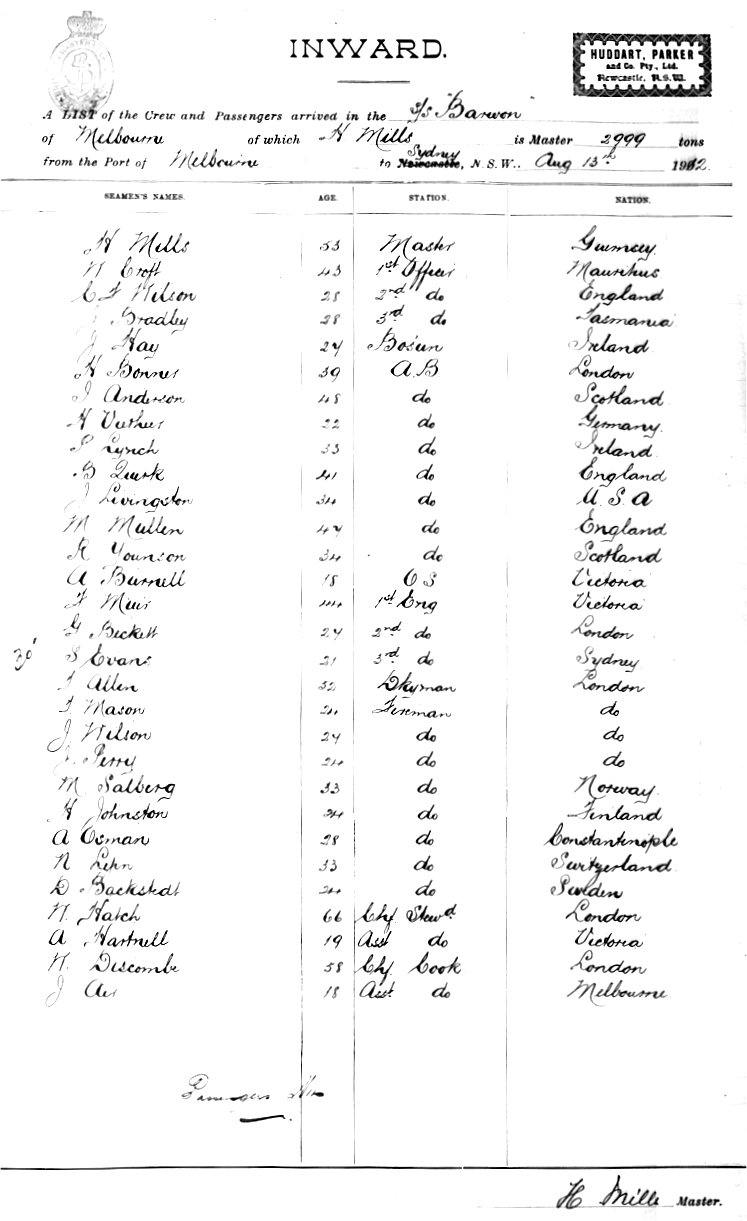 INWARD.
HUDDART, PARKER
and Co. Pty., Ltd.
Newcastle, N.S.W.
A LIST of the Crew and Passengers arrived in the s/s "Barwon"
of Melbourne of which H Mills is Master 2999 tons
from the Port of Melbourne to Newcastle Sydney, N.S.W., Aug 13th 1912.
SEAMEN'S NAMES. AGE. STATION. NATION.
H Mills 53 Master Guernsey
W Croft 43 1st Officer Mauritius
C F Wilson 28 2nd do England
J Bradley 28 3rd do Tasmania
J Hay 27 Bosun Ireland
H Bonner 39 A.B London
J Anderson 48 do Scotland
H 22 do Germany
P Lynch 33 do Ireland
B Quirk 41 do England
J Livingston 34 do U.S.A
M Mullen 47 do England
R Younson 34 do Scotland
A Burnell 18 O S Victoria
F Muir 44 1st Eng Victoria
G Beckett 27 2nd do London
30 S Evans 21 3rd do Sydney
F Allen 32 Dkyman London
F Mason 24 Fireman do
J Wilson 27 do do
J Perry 24 do do
M Salberg 33 do Norway
H Johnston 24 do Finland
A Osman 28 do Constantinople
N Lehn 33 do Switzerland
D Backstedt 24 do Sweden
W Hatch 66 Chf Stewd London
A Hartnell 19 Asst do Victoria
W Discombe 58 Chf Cook London
J 18 Asst do Melbourne
Passengers Nil
H Mills Master.